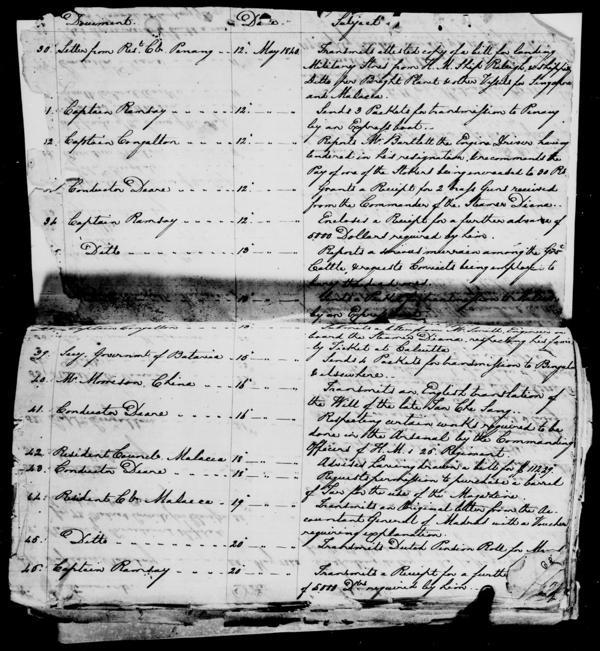 Document. Date Subject.
30. Letter from Rest. Cr. Penang 12. May 1840 Transmits attested copy of a bill for landing
Military Stores from H. M. Ship Raleigh, & shipping
ditto per Bright Planet & other Vessels for Singapore
and Malacca.
1. Captain Ramsay 12. Sends 3 Packets for transmission to Penang
by an Express boat.
32. Captain Congalton 12. Reports Mr. Bartlett the Engine Driver having
tendered in his resignation, & recommends the
Pay of one of the Stokers being increased to 30 Rs.
Conductor Deare 12. Grants a Receipt for 2 brass Guns received
from the Commander of the Steamer Diana.
34. Captain Ramsay 12. Encloses a Receipt for a further advance of
5000 Dollars required by him.
Ditto 13 Reports a murrain among the Govt.
Cattle, & requests Convicts being employed to
by an Express boat.
Captain Congalton
board the Steamer Diana, respecting his family
39. Secy. Governmt. of Batavia 15 Sends 2 Packets for transmission to Bengal
& elsewhere.
40. Mr. Morrison China 16 Transmits an English translation of
the Will of the late Tan Che Sang.
41. Conductor Deare 16 Respecting certain works required to be
done in the Arsenal by the Commanding
Officers of H. M. & 26 Regiment.
42. Resident Councr. Malacca 18 Advises having drawn a bill for
43. Conductor Deare 18 Requests permission to purchase a barrel
of Tar for the use of the Magazine.
44. Resident Cr. Malacca 19 Transmits an Original letter from the Ac-
countant General of Madras with a Voucher
requiring explanation.
45. Ditto 20 Transmits Dutch Pension Roll for
46. Captain Ramsay 20 Transmits a Receipt for a further
of 5000 Drs. required by him.